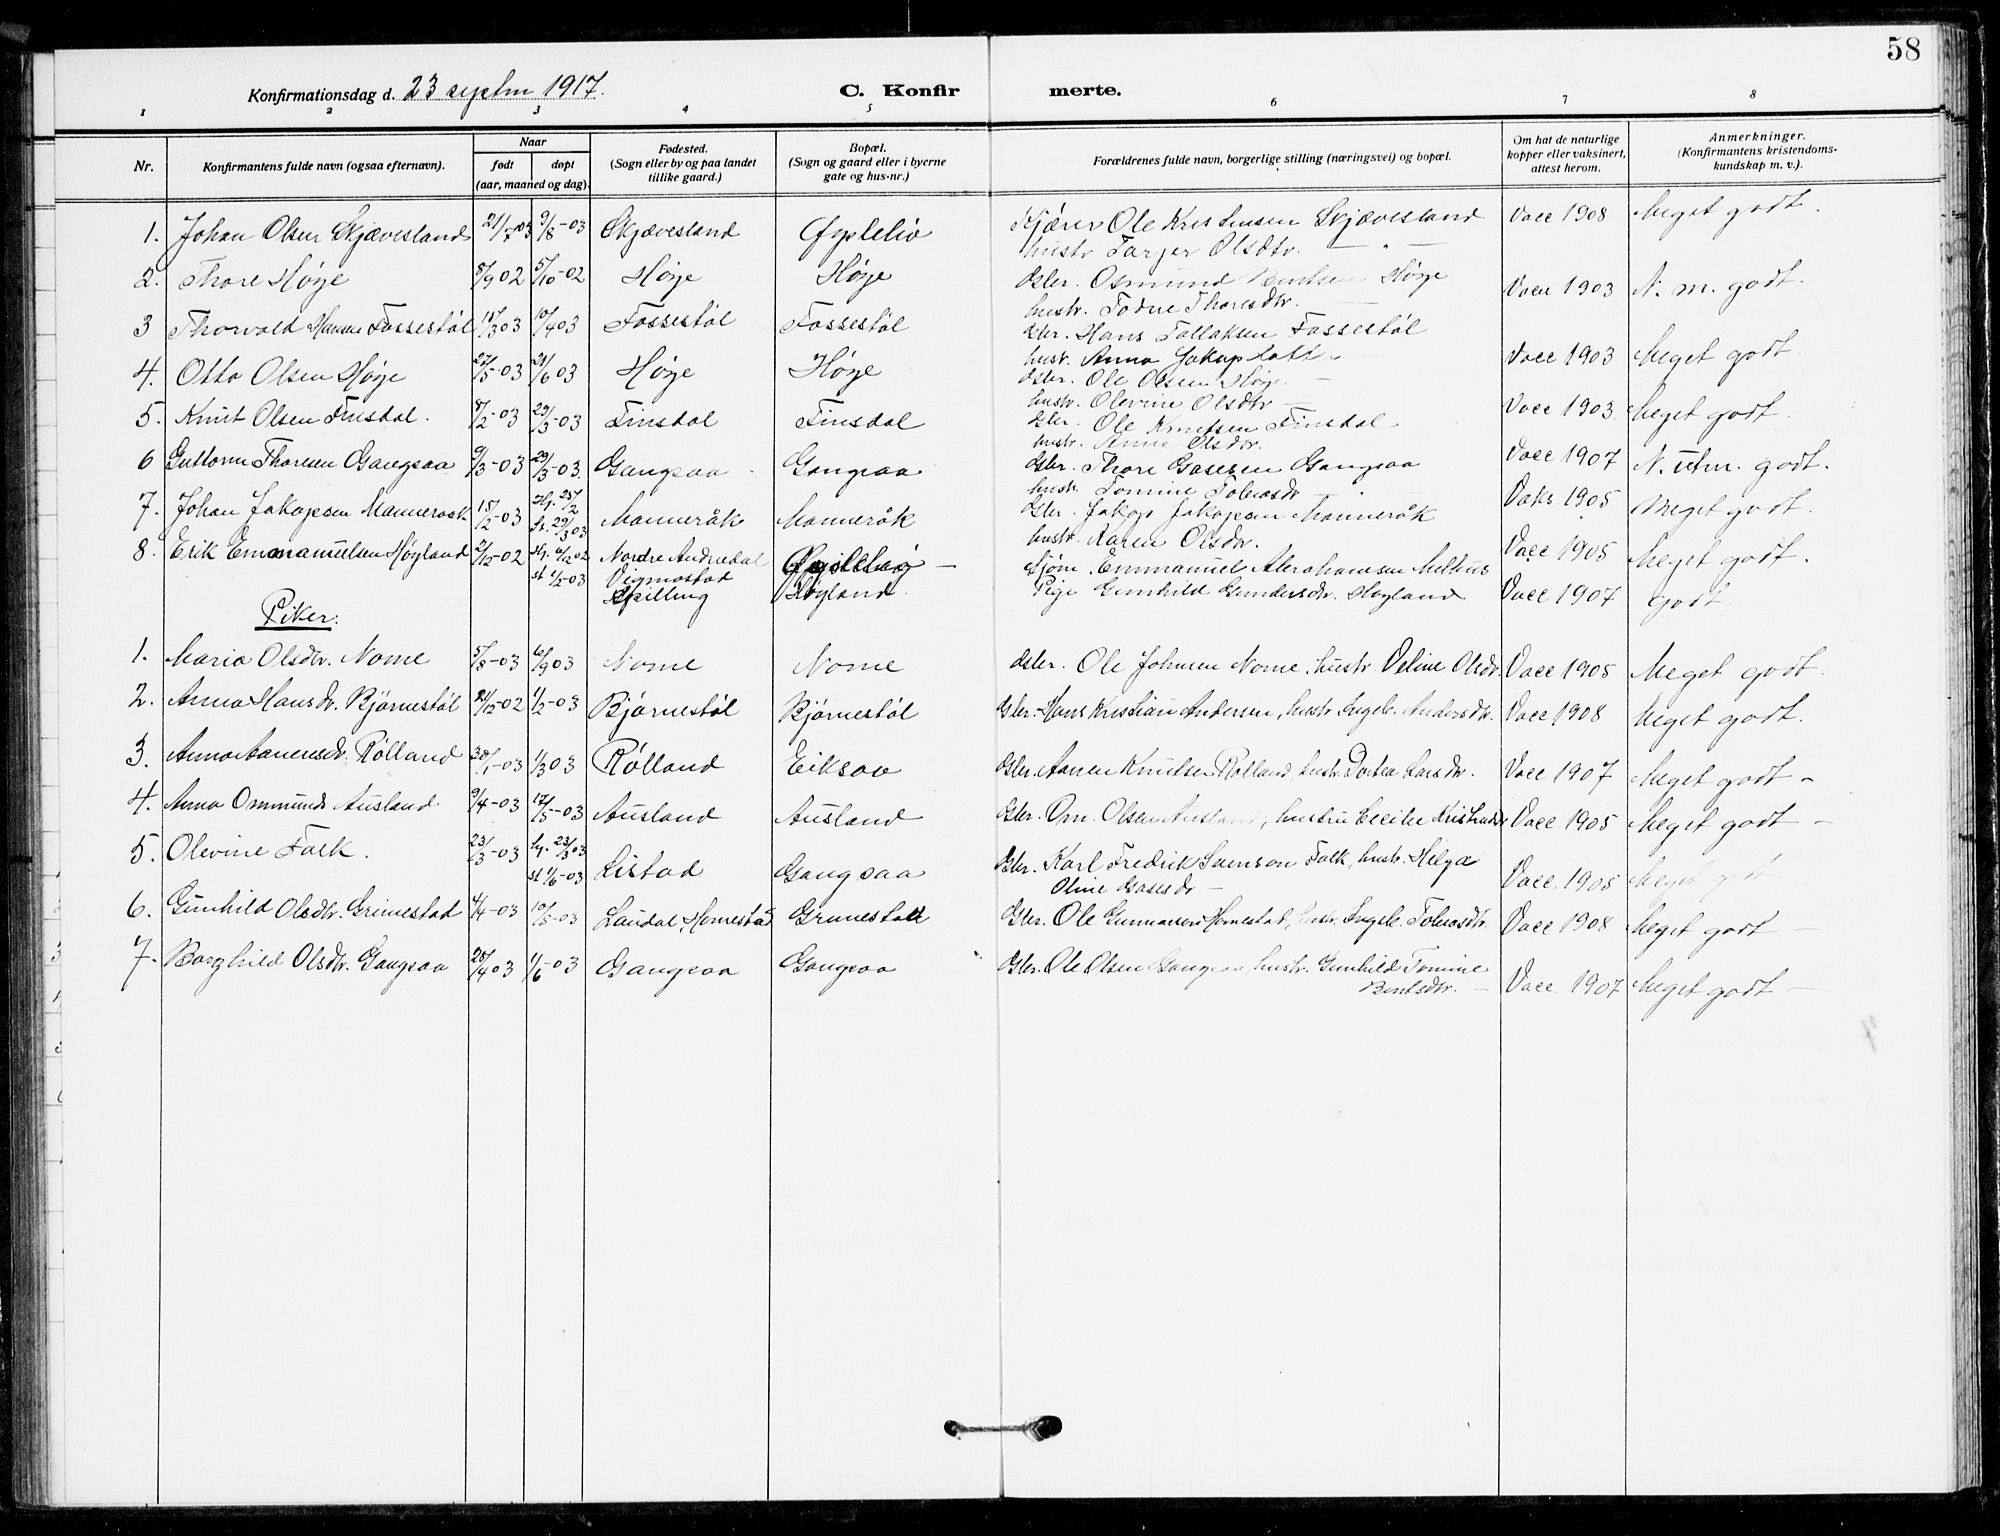 58
Konfirmationsdag d. 23 septbr 1917.
C. Konfirmerte.
1 2 3 4 5 6 7 8
Nr. Konfirmantens fulde navn (ogsaa efternavn). Naar født døpt (aar, maaned og dag). Fødested. (Sogn eller by og paa landet tillike gaard.) Bopæl. (Sogn og gaard eller i byerne gate og hus-nr.) Forældrenes fulde navn, borgerlige stilling (næringsvei) og bopæl. Om hat de naturlige kopper eller vaksinert, attest herom. Anmerkninger. (Konfirmantens kristendomskundskap m. v.).
1. Johan Olsen Skjævesland 21/7-03 9/8-03 Skjævesland Øypleliø Kjører Ole Kristensen Skjævesland Vacc 1908 Meget godt.
hustr Tarjer Olsdtr. — " —
2. Thore Høye 8/9 02 5/10-02 Høye Høye Gbr. Osmund Bentsen Høye Vacc 1903 N. m. godt.
hustr. Todne Thoresdtr.
3 Thorvald Hansen Fossestøl 15/3 03 10/4 03 Fossestøl Fossestøl Gbr. Hans Tallaksen Fossestøl Vacc 1903 Meget godt
hust. Anna Jakopsdatt
4. Otto Olsen Høye 27/5-03 21/6 03 Høye Høye Gbr. Ole Olsen Høye — Vacc 1903 Meget godt.
hustr. Olevine Olsdtr —
5. Knut Olsen Finsdal. 8/2-03 29/3-03 Finsdal Finsdal Gbr. Ole Knutsen Finsdal Vacc 1907 N. utm. godt.
hustr. Anne Olsdtr.
6 Guttorm Thoresen Gangsaa 9/3-03 29/3-03. Gangsaa Gangsaa Gbr. Thore Gasesen Gangsaa Vaks. 1905 Meget godt.
hustr. Tomine Tobiasdr — " —
7. Johan Jakopsen Mannerak 15/2-03 Hj. 25/2 st. 29/3 03 Manneråk Manneråk Gbr. Jakop Jakopsen Manneråk Vacc 1905 Meget godt.
hustr. Karen Olsdtr.
8. Erik Emmanuelsen Høyland 2/12-02 Hj. 6/12 02 st 1/2-03 Nordre Audnedal Vigmostad Spilling Høyland. Sjøm. Emmanuel Abrahamsen Melhus
Pige Gunhild Gundersdr. Høyland Vacc 1907 godt.
Piker:
1. Maria Olsdtr. Nome 5/8-03 6/9 03 Nome Nome Gbr. Ole Johnsen Nome, hustr Oline Olsdr. Vacc 1905 Meget godt.
2. Anna Hansdr. Bjørnestøl 21/12-02 1/2-03 Bjørnestøl Bjørnestøl Gbr. Hans Kristian Andersen, hustr Ingeb. Andersdtr. Vacc 1908 Meget godt.
3. Anna Aanensdr. Rølland 30/1-03 1/3 03 Rølland Eiksaa Gbr. Aanen Knutsen Rølland, hustr. Dortea Larsdr. Vacc 1907 Meget godt —
4. Anna Ommunds Ausland 9/4-03 17/5-03 Ausland Ausland Gbr. Om. Olsen Ausland, hustru Cecilie Vacc 1905 Meget godt —
5. Olevine Falk. 23/3-03 hj. 23/3 03 st 1/6-03 Listad Gangsaa Gbr. Karl Fredrik Svenson Falk, hustr. Helga Vacc. 1905 Meget godt
Oline Gasesdr —
6. Gunhild Olsdtr. Grimestad 4/4-03 10/5-03 Laudal, Homestad Grimestad Gbr. Ole Gunnarsen Homestad, hustr. Ingeb. Tobiasdtr. Vacc 1908 Meget godt —
7. Borghild Olsdtr. Gangsaa 28/4 03 1/6-03 Gangsaa Gangsaa Gbr. Ole Olsen Gangsaa, hustr. Gunhild Tomine
Bentsdtr. — Vacc 1907 Meget godt —